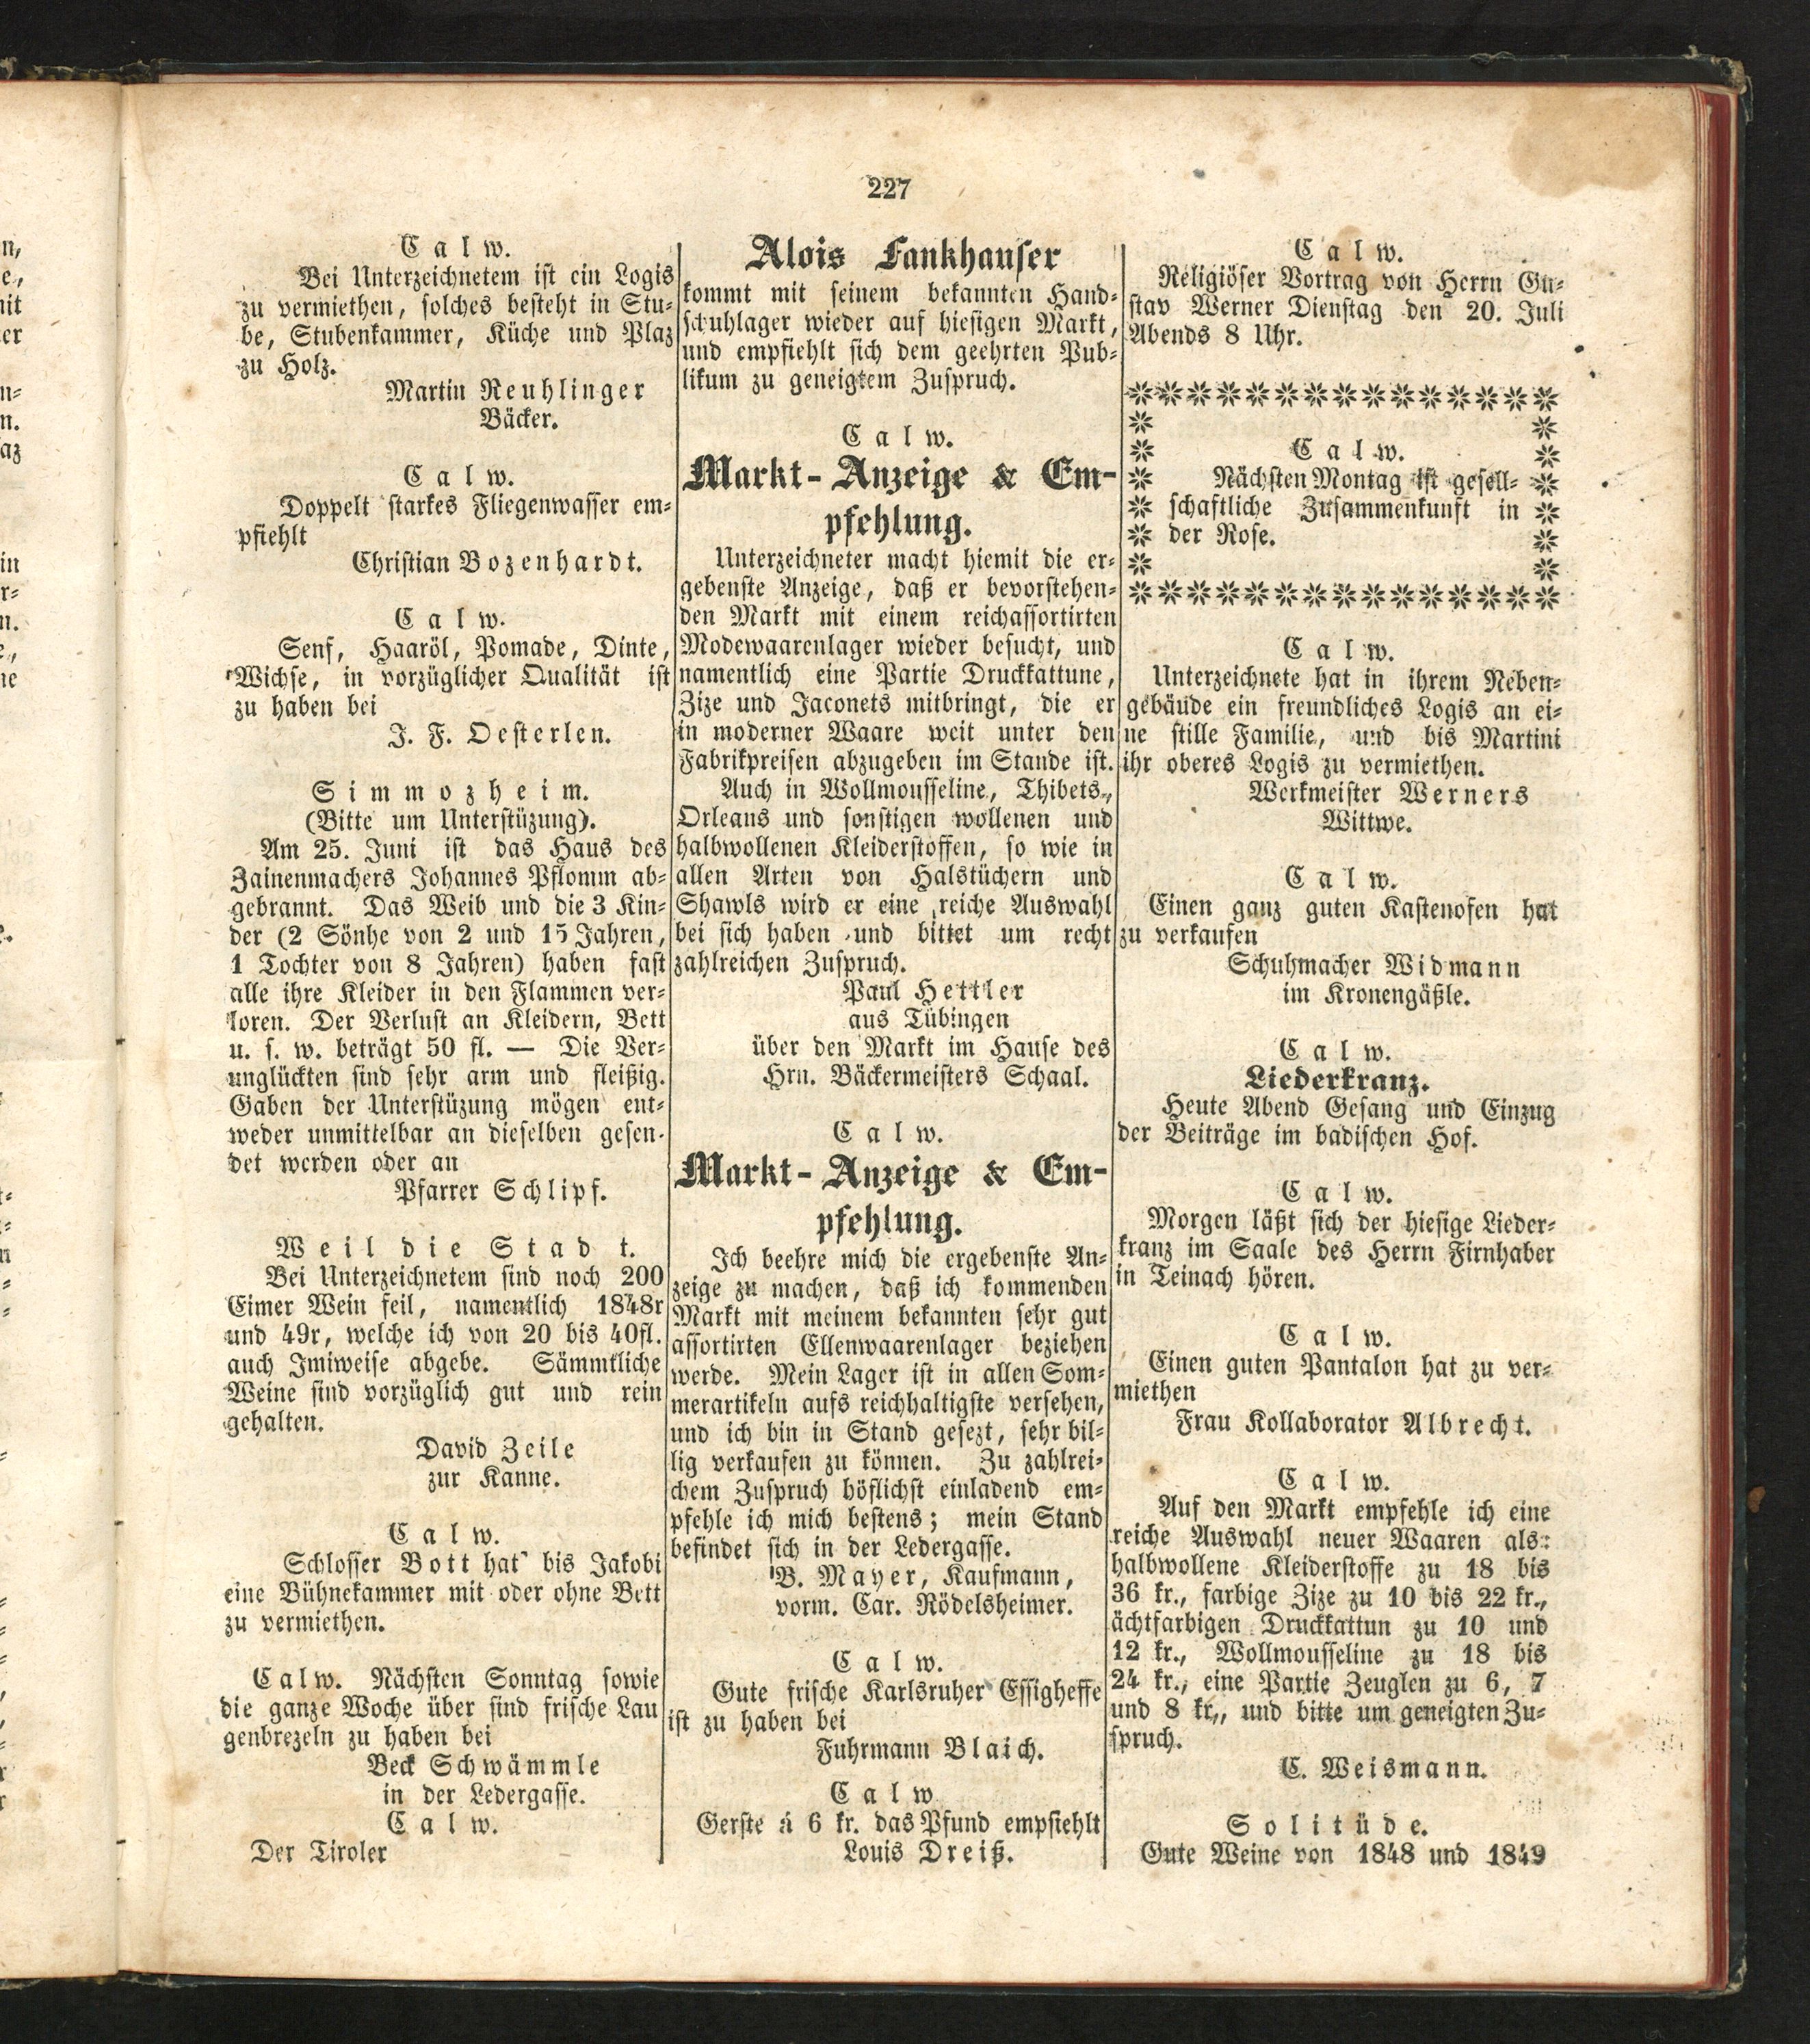 227
Calw.
Bei Unterzeichnetem ist ein Logis
zu vermiethen, solches besteht in Stu-
be, Stubenkammer, Küche und Plaz
zu Holz.
Martin Reuhlinger
Bäcker.
Calw.
Doppelt starkes Fliegenwasser em-
pfiehlt
Christian Bozenhardt.
Calw.
Senf, Haaröl, Pomade, Dinte,
Wichse, in vorzüglicher Qualität ist
zu haben bei
J. F. Oesterlen.
Simmozheim.
(Bitte um Unterstüzung).
Am 25. Juni ist das Haus des
Zainenmachers Johannes Pflomm ab-
gebrannt. Das Weib und die 3 Kin-
der (2 Sönhe von 2 und 15 Jahren,
1 Tochter von 8 Jahren) haben fast
alle ihre Kleider in den Flammen ver-
loren. Der Verlust an Kleidern, Bett
u. s. w. beträgt 50 fl. — Die Ver-
unglückten sind sehr arm und fleißig.
Gaben der Unterstüzung mögen ent-
weder unmittelbar an dieselben gesen-
det werden oder an
Pfarrer Schlipf.
Weil die Stadt.
Bei Unterzeichnetem sind noch 200
Eimer Wein feil, namentlich 1848r
und 49r, welche ich von 20 bis 40fl.
auch Imiweise abgebe. Sämmtliche
Weine sind vorzüglich gut und rein
gehalten.
David Zeile
zur Kanne.
Calw.
Schlosser Bott hat bis Jakobi
eine Bühnekammer mit oder ohne Bett
zu vermiethen.
Calw. Nächsten Sonntag sowie
die ganze Woche über sind frische Lau
genbrezeln zu haben bei
Beck Schwämmle
in der Ledergasse.
Calw.
Der Tiroler
Alois Fankhauser
kommt mit seinem bekannten Hand-
schuhlager wieder auf hiesigen Markt,
und empfiehlt sich dem geehrten Pub-
likum zu geneigtem Zuspruch.
Calw.
Markt-Anzeige & Em-
pfehlung.
Unterzeichneter macht hiemit die er-
gebenste Anzeige, daß er bevorstehen-
den Markt mit einem reichassortirten
Modewaarenlager wieder besucht, und
namentlich eine Partie Druckkattune,
Zize und Jaconets mitbringt, die er
in moderner Waare weit unter den
Fabrikpreisen abzugeben im Stande ist.
Auch in Wollmousseline, Thibets,
Orleans und sonstigen wollenen und
halbwollenen Kleiderstoffen, so wie in
allen Arten von Halstüchern und
Shawls wird er eine reiche Auswahl
bei sich haben und bittet um recht
zahlreichen Zuspruch.
Paul Hettler
aus Tübingen
über den Markt im Hause des
Hrn. Bäckermeisters Schaal.
Calw.
Markt-Anzeige & Em-
pfehlung.
Ich beehre mich die ergebenste An-
zeige zu machen, daß ich kommenden
Markt mit meinem bekannten sehr gut
assortirten Ellenwaarenlager beziehen
werde. Mein Lager ist in allen Som-
merartikeln aufs reichhaltigste versehen,
und ich bin in Stand gesezt, sehr bil-
lig verkaufen zu können. Zu zahlrei-
chem Zuspruch höflichst einladend em-
pfehle ich mich bestens; mein Stand
befindet sich in der Ledergasse.
B. Mayer, Kaufmann,
vorm. Car. Rödelsheimer.
Calw.
Gute frische Karlsruher Essigheffe
ist zu haben bei
Fuhrmann Blaich.
Calw
Gerste á 6 kr. das Pfund empfiehlt
Louis Dreiß.
Calw.
Religiöser Vortrag von Herrn Gu-
stav Werner Dienstag den 20. Juli
Abends 8 Uhr.
Calw.
Nächsten Montag ist gesell-
schaftliche Zusammenkunft in
der Rose.
Calw.
Unterzeichnete hat in ihrem Neben-
gebäude ein freundliches Logis an ei-
ne stille Familie, und bis Martini
ihr oberes Logis zu vermiethen.
Werkmeister Werners
Wittwe.
Calw.
Einen ganz guten Kastenofen hat
zu verkaufen
Schuhmacher Widmann
im Kronengäßle.
Calw.
Liederkranz.
Heute Abend Gesang und Einzug
der Beiträge im badischen Hof.
Calw.
Morgen läßt sich der hiesige Lieder-
kranz im Saale des Herrn Firnhaber
in Teinach hören.
Calw.
Einen guten Pantalon hat zu ver-
miethen
Frau Kollaborator Albrecht.
Calw.
Auf den Markt empfehle ich eine
reiche Auswahl neuer Waaren als:
halbwollene Kleiderstoffe zu 18 bis
36 kr., farbige Zize zu 10 bis 22 kr.,
ächtfarbigen Druckkattun zu 10 und
12 kr., Wollmousseline zu 18 bis
24 kr., eine Partie Zeuglen zu 6, 7
und 8 kr., und bitte um geneigten Zu-
spruch.
C. Weismann.
Solitüde.
Gute Weine von 1848 und 1849